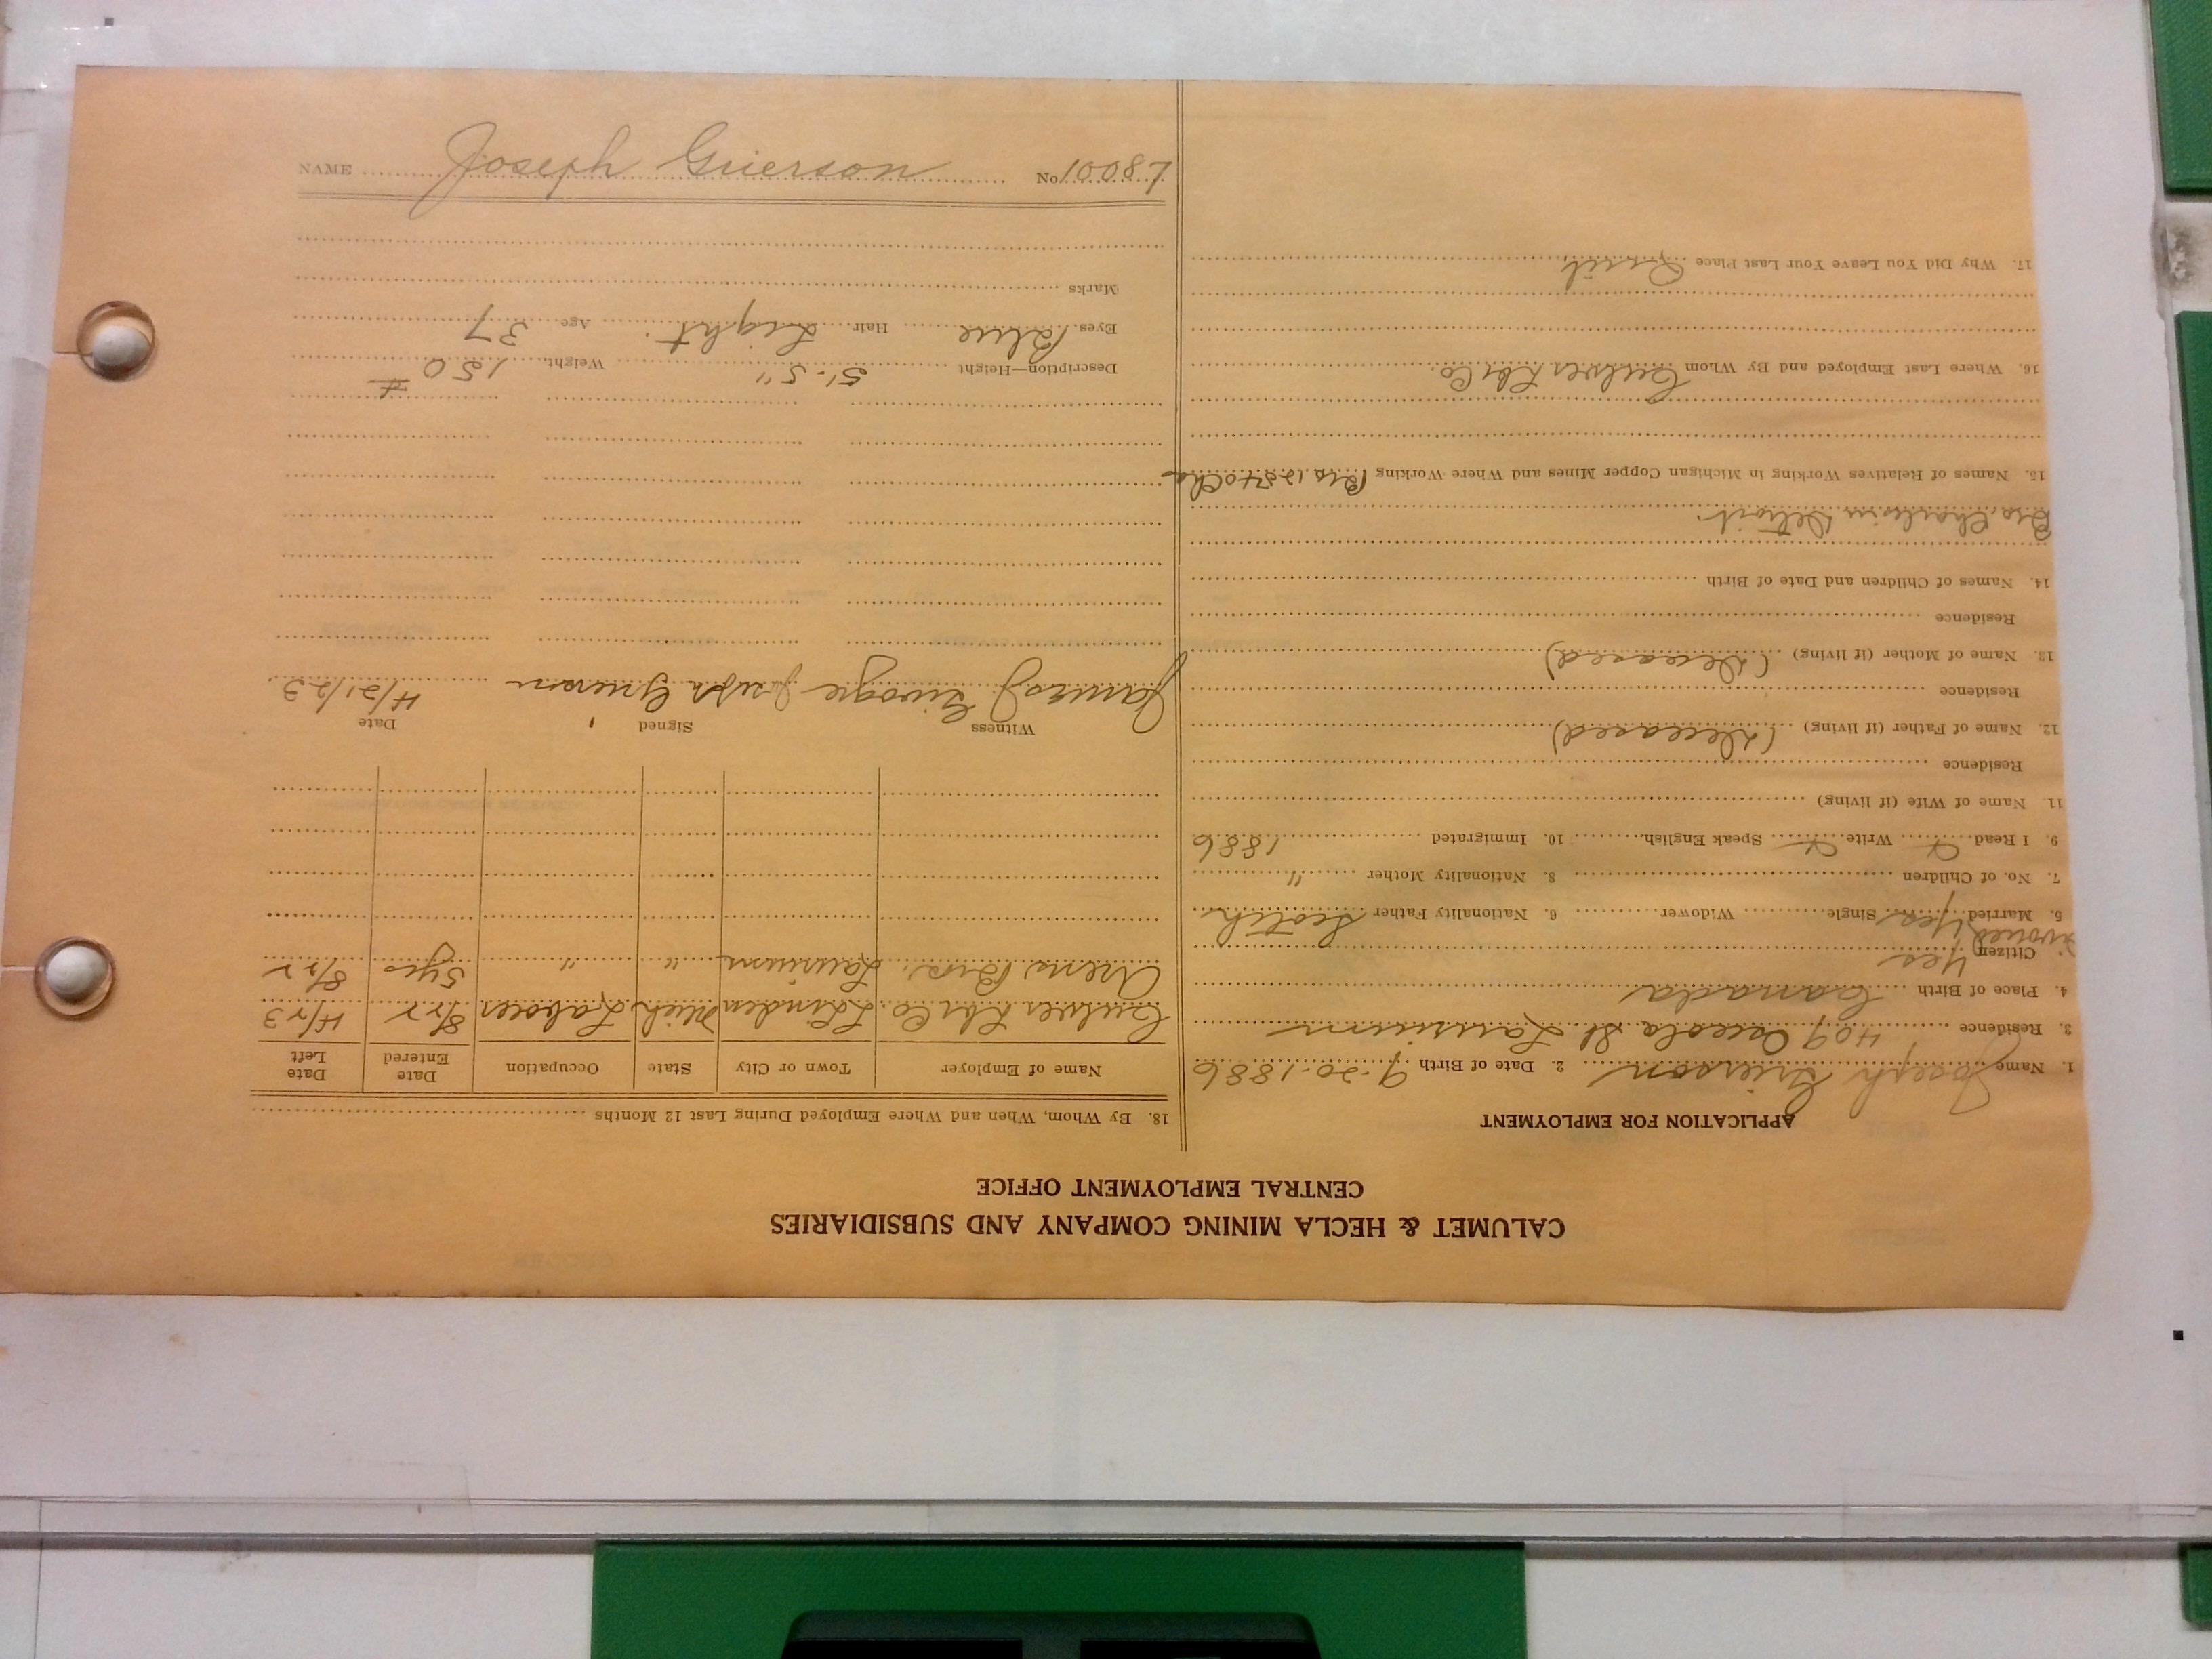 CALUMET & HECLA MINING COMPANY AND SUBSIDIARIES
CENTRAL EMPLOYMENT OFFICE
APPLICATION FOR EMPLOYMENT
1. Name Joseph Grierson 2. Date of Birth 9-20-1886
3. Residence 409 Osceola St. Laurium
4. Place of Birth Canada
Citizen Yes
Divorced
5. Married Yes Single Widower 6. Nationality Father Scotch
7. No. of Children 8. Nationality Mother "
9. I Read x Write x Speak English 10. Immigrated 1886
11. Name of Wife (if living)
Residence
12. Name of Father (if living) (Deceased)
Residence
13. Name of Mother (if living) (Deceased)
Residence
14. Names of Children and Date of Birth
Bro. Charles in Detroit.
15. Names of Relatives Working in Michigan Copper Mines and Where Working Bro.
16. Where Last Employed and By Whom Culver Lbr Co.
17. Why Did You Leave Your Last Place Quit
18. By Whom, When and Where Employed During Last 12 Months
Name of Employer Town or City State Occupation Date Entered Date Left
Culver Lbr Co. L Linden Mich Laborer 8/22 4/23
Arens Bros. Laurium " " 5 yrs 8/22
Witness Signed Date
James J. Joseph Grierson 4/21/23
Description—Height 5'-5" Weight 150 #
Eyes Blue Hair Light. Age 37
Marks
NAME Joseph Grierson No 10087